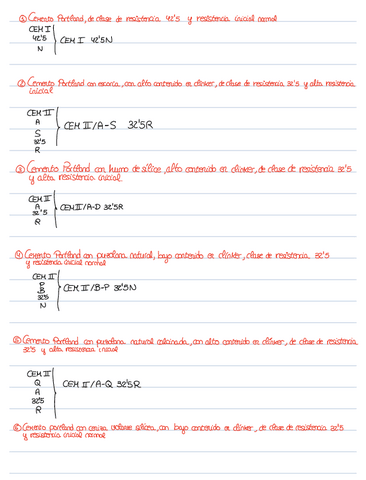 ① Cemento Portland, de clase de resistencia 42'5 y resistencia inicial normal
CEM I
42'5
N
CEM I 42'5N
② Cemento Portland con escoria, con alto contenido en clínker, de clase de resistencia 32'5 y alta resistencia
inicial
CEM II
A
S
32'5
R
CEM II/A-S 32'5R
③ Cemento Portland con humo de sílice, alto contenido en clínker, de clase de resistencia 32'5
y alta resistencia inicial
CEM II
A
32'5
R
CEM II/A-D 32'5R
④ Cemento Portland con puzolana natural, bajo contenido en clínker, clase de resistencia 32'5
y resistencia inicial normal
CEM II
P
B
32'5
N
CEM II/B-P 32'5N
⑤ Cemento Portland con puzolana natural calcinada, con alto contenido en clínker, de clase de resistencia
32'5 y alta resistencia inicial
CEM II
Q
A
32'5
R
CEM II/A-Q 32'5R
⑥ Cemento portland con ceniza volante silícea, con bajo contenido en clínker, de clase de resistencia 32'5
y resistencia inicial normal